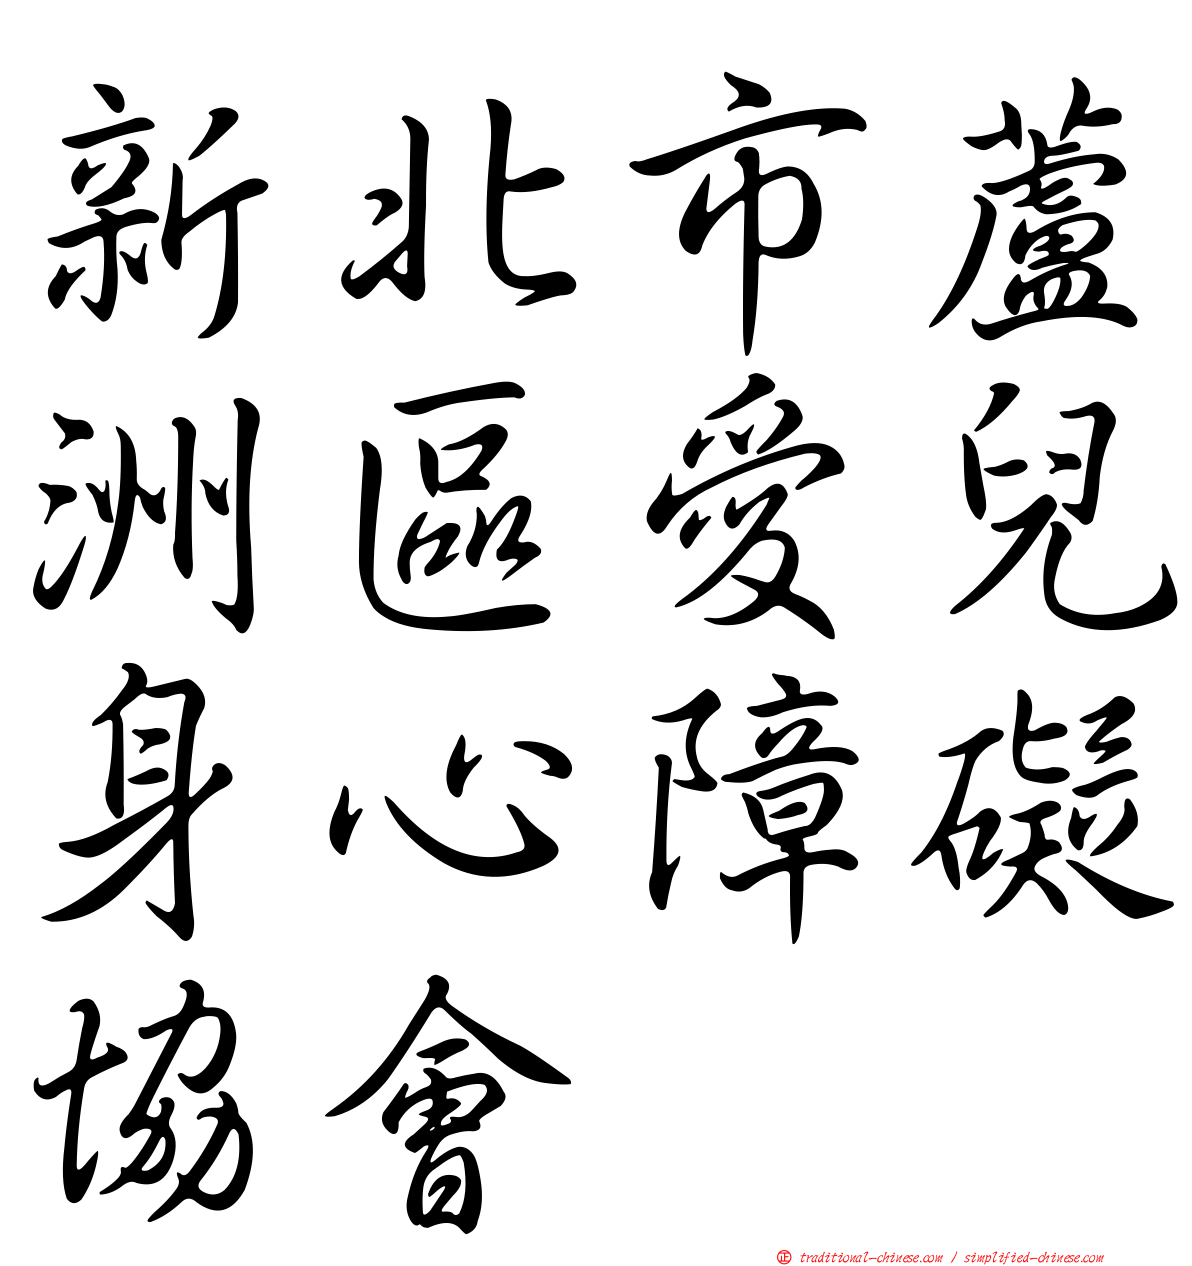 新北市蘆
洲區愛兒
身心障礙
協會
正 traditional-chinese.com / simplified-chinese.com